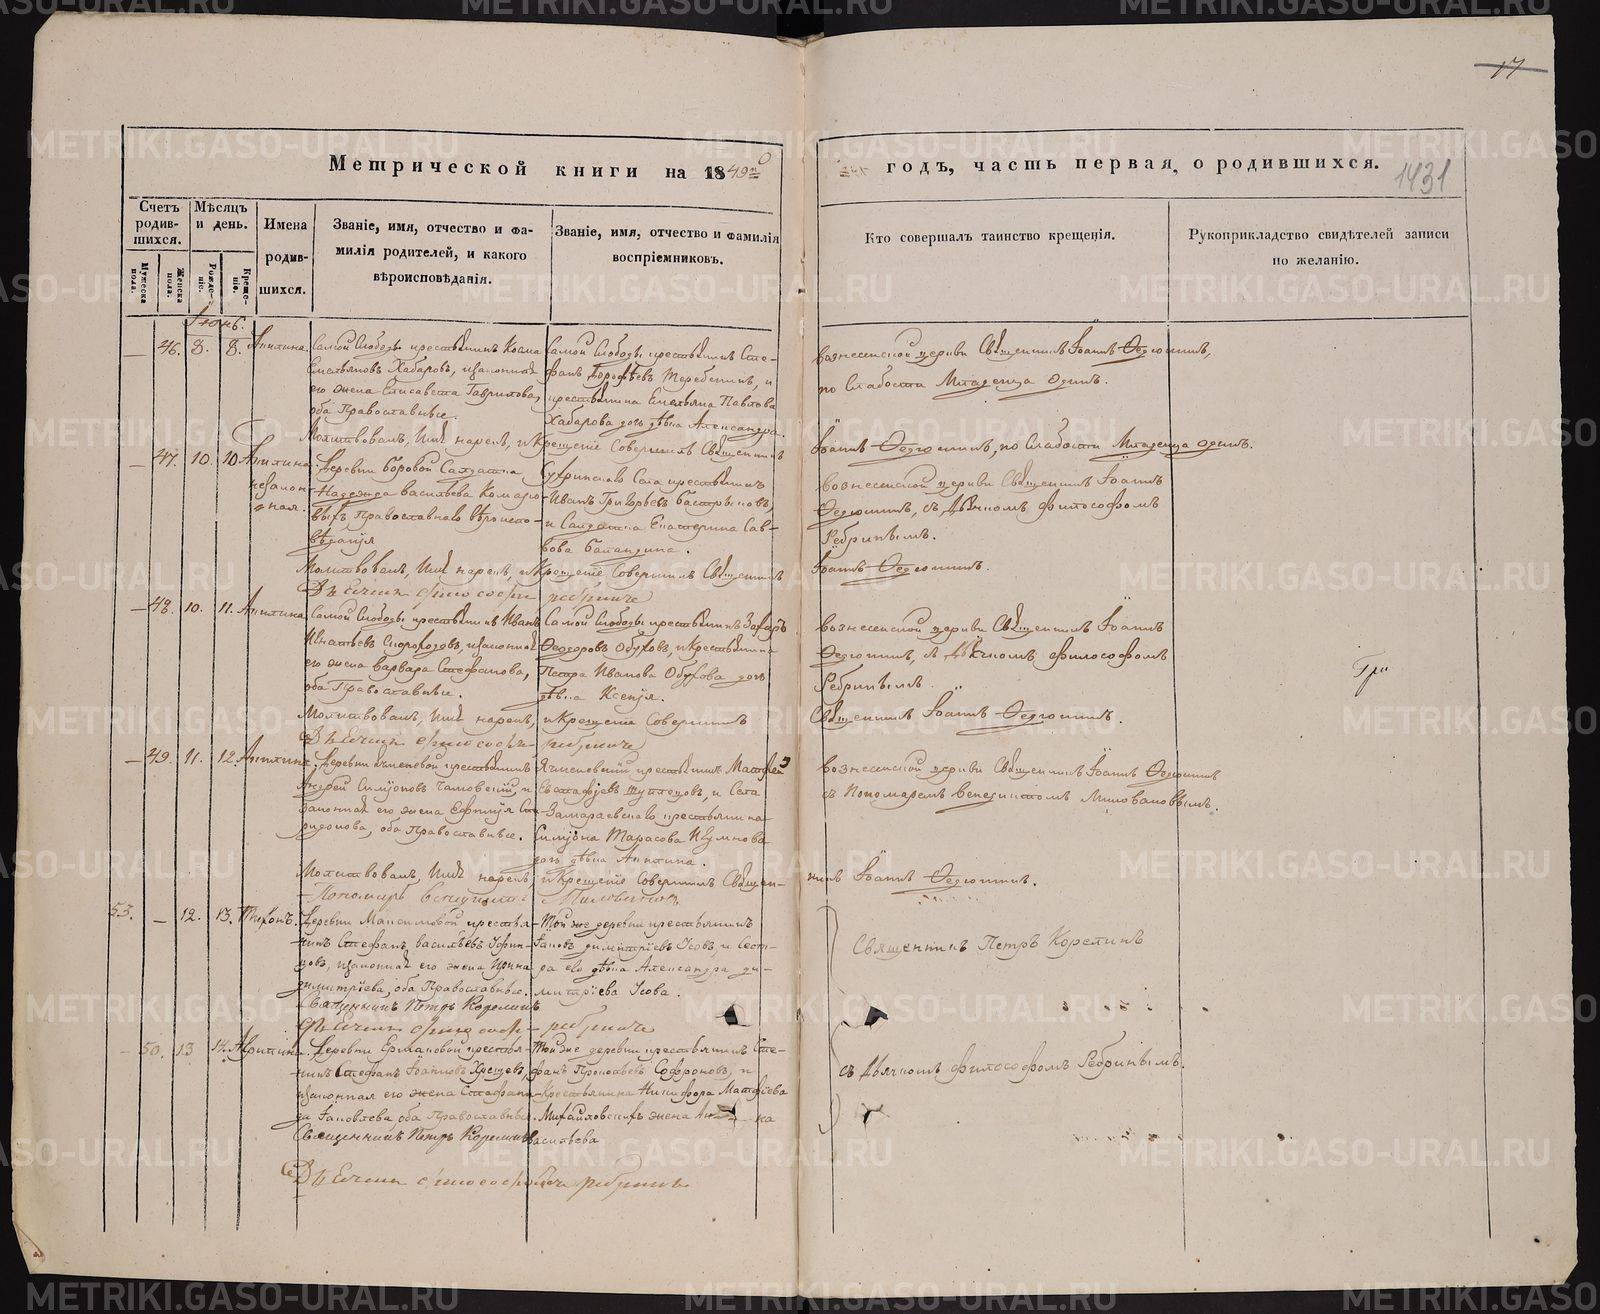 17
Метрической книги на 1849й
годъ, часть первая, о родившихся.
1431
Счетъ родившихся.
Мужеска пола.
Женска пола.
Мѣсяцъ и день.
Рожденіе.
Крещеніе.
Имена родившихся.
Званіе, имя, отчество и фамилія родителей, и какого вѣроисповѣданія.
Званіе, имя, отчество и фамилія воспріемниковъ.
Кто совершалъ таинство крещенія.
Рукоприкладство свидѣтелей записи по желанію.
Іюнь.
— 46. 8. 8. Акилина.
Самой Слободы крестьянинъ Косма
Емельяновъ Хабаровъ, и законная
его жена Елисавета Гаврилова,
оба Православные.
Самой Слободы крестьянинъ Сте-
фанъ Теребенинъ, и
крестьянина Емельяна Павлова
Хабарова дочь дѣвка Александра.
Вознесенской церкви Священникъ Іоаннъ Ѳедюшинъ,
по слабости Младенца одинъ.
Молитвовалъ, Имя нарекъ, и Крещеніе Совершилъ Священникъ
Іоаннъ Ѳедюшинъ, по слабости Младенца одинъ.
— 47. 10. 10. Акилина
незакон-
ная.
Деревни Боровой Солдатка
Надежда Васильева Комаро-
выхъ Православнаго вѣроиспо-
вѣданія
Сухринскаго Села крестьянинъ
Иванъ Григорьевъ Бастрыковъ,
и Солдатка Екатерина Сав-
вова Баландина.
Вознесенской церкви Священникъ Іоаннъ
Ѳедюшинъ, съ Дьячкомъ философомъ
Ребринымъ.
Молитвовалъ, Имя нарекъ, и Крещеніе Совершилъ Священникъ
Іоаннъ Ѳедюшинъ.
— 48. 10. 11. Акилина
Самой Слободы крестьянинъ Иванъ
Игнатьевъ Скороходовъ, и законная
его жена Варвара Стефанова,
оба Православные.
Самой Слободы крестьянинъ Захаръ
Ѳедоровъ Обуховъ, и крестьянина
Петра Иванова Обухова дочь
дѣвка Ксенія.
Вознесенской церкви Священникъ Іоаннъ
Ѳедюшинъ, съ Дьячкомъ философомъ
Ребринымъ.
Гри
Молитвовалъ, Имя нарекъ, и Крещеніе Совершилъ
Священникъ Іоаннъ Ѳедюшинъ.
— 49. 11. 12. Акилина.
Андрей Симуоновъ и
законная его жена Ефимія Спи-
ридонова, оба Православные.
крестьянинъ Матфей
Евстафіевъ и Села
Замараевскаго крестьянина
Симуона Тарасова Игумнова
дочь дѣвка Акилина.
Вознесенской церкви Священникъ Іоаннъ Ѳедюшинъ
съ Пономаремъ Венедиктомъ Миловановымъ.
Молитвовалъ, Имя нарекъ, и Крещеніе Совершилъ Священ-
никъ Іоаннъ Ѳедюшинъ.
53. — 12. 13. Тихонъ.
Деревни Максимовой крестья-
нинъ Стефанъ Васильевъ
и законная его жена Ирина
Димитріева, оба Православные.
Той же деревни крестьянинъ
Іаковъ Димитріевъ Усовъ, и Сест-
ра его дѣвка Александра Ди-
митріева Усова.
Священникъ Петръ Корелинъ
Священникъ Петръ Корелинъ
— 50. 13 14. Акилина.
Деревни Ермаковой крестья-
нинъ Стефанъ Іоанновъ
и законная его жена Стефани-
да Іаковлева, оба Православные.
Той же деревни крестьянинъ Сте-
фанъ Прокопьевъ Софроновъ, и
Крестьянина Никифора Матфіева
Михайловскихъ жена
Васильева
съ Дьячкомъ философомъ Ребринымъ.
Священникъ Петръ Корелинъ
METRIKI.GASO-URAL.RU